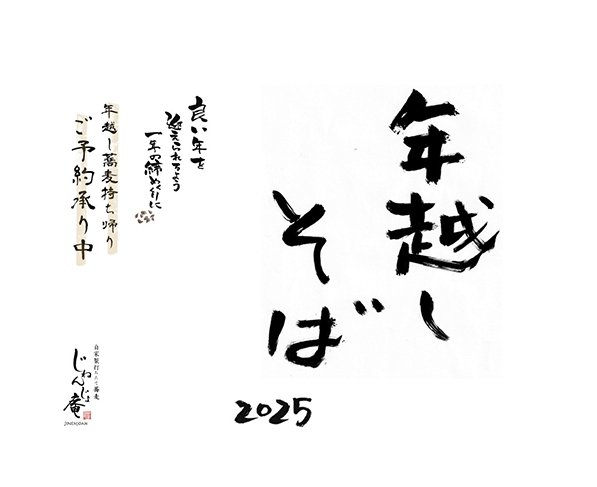 年越し
そば
2025
良い年を
迎えられるよう
一年の締めくくりに
年越し蕎麦持ち帰り
ご予約承り中
自家製打ちたて蕎麦
じねんじょ庵
JINENJOAN